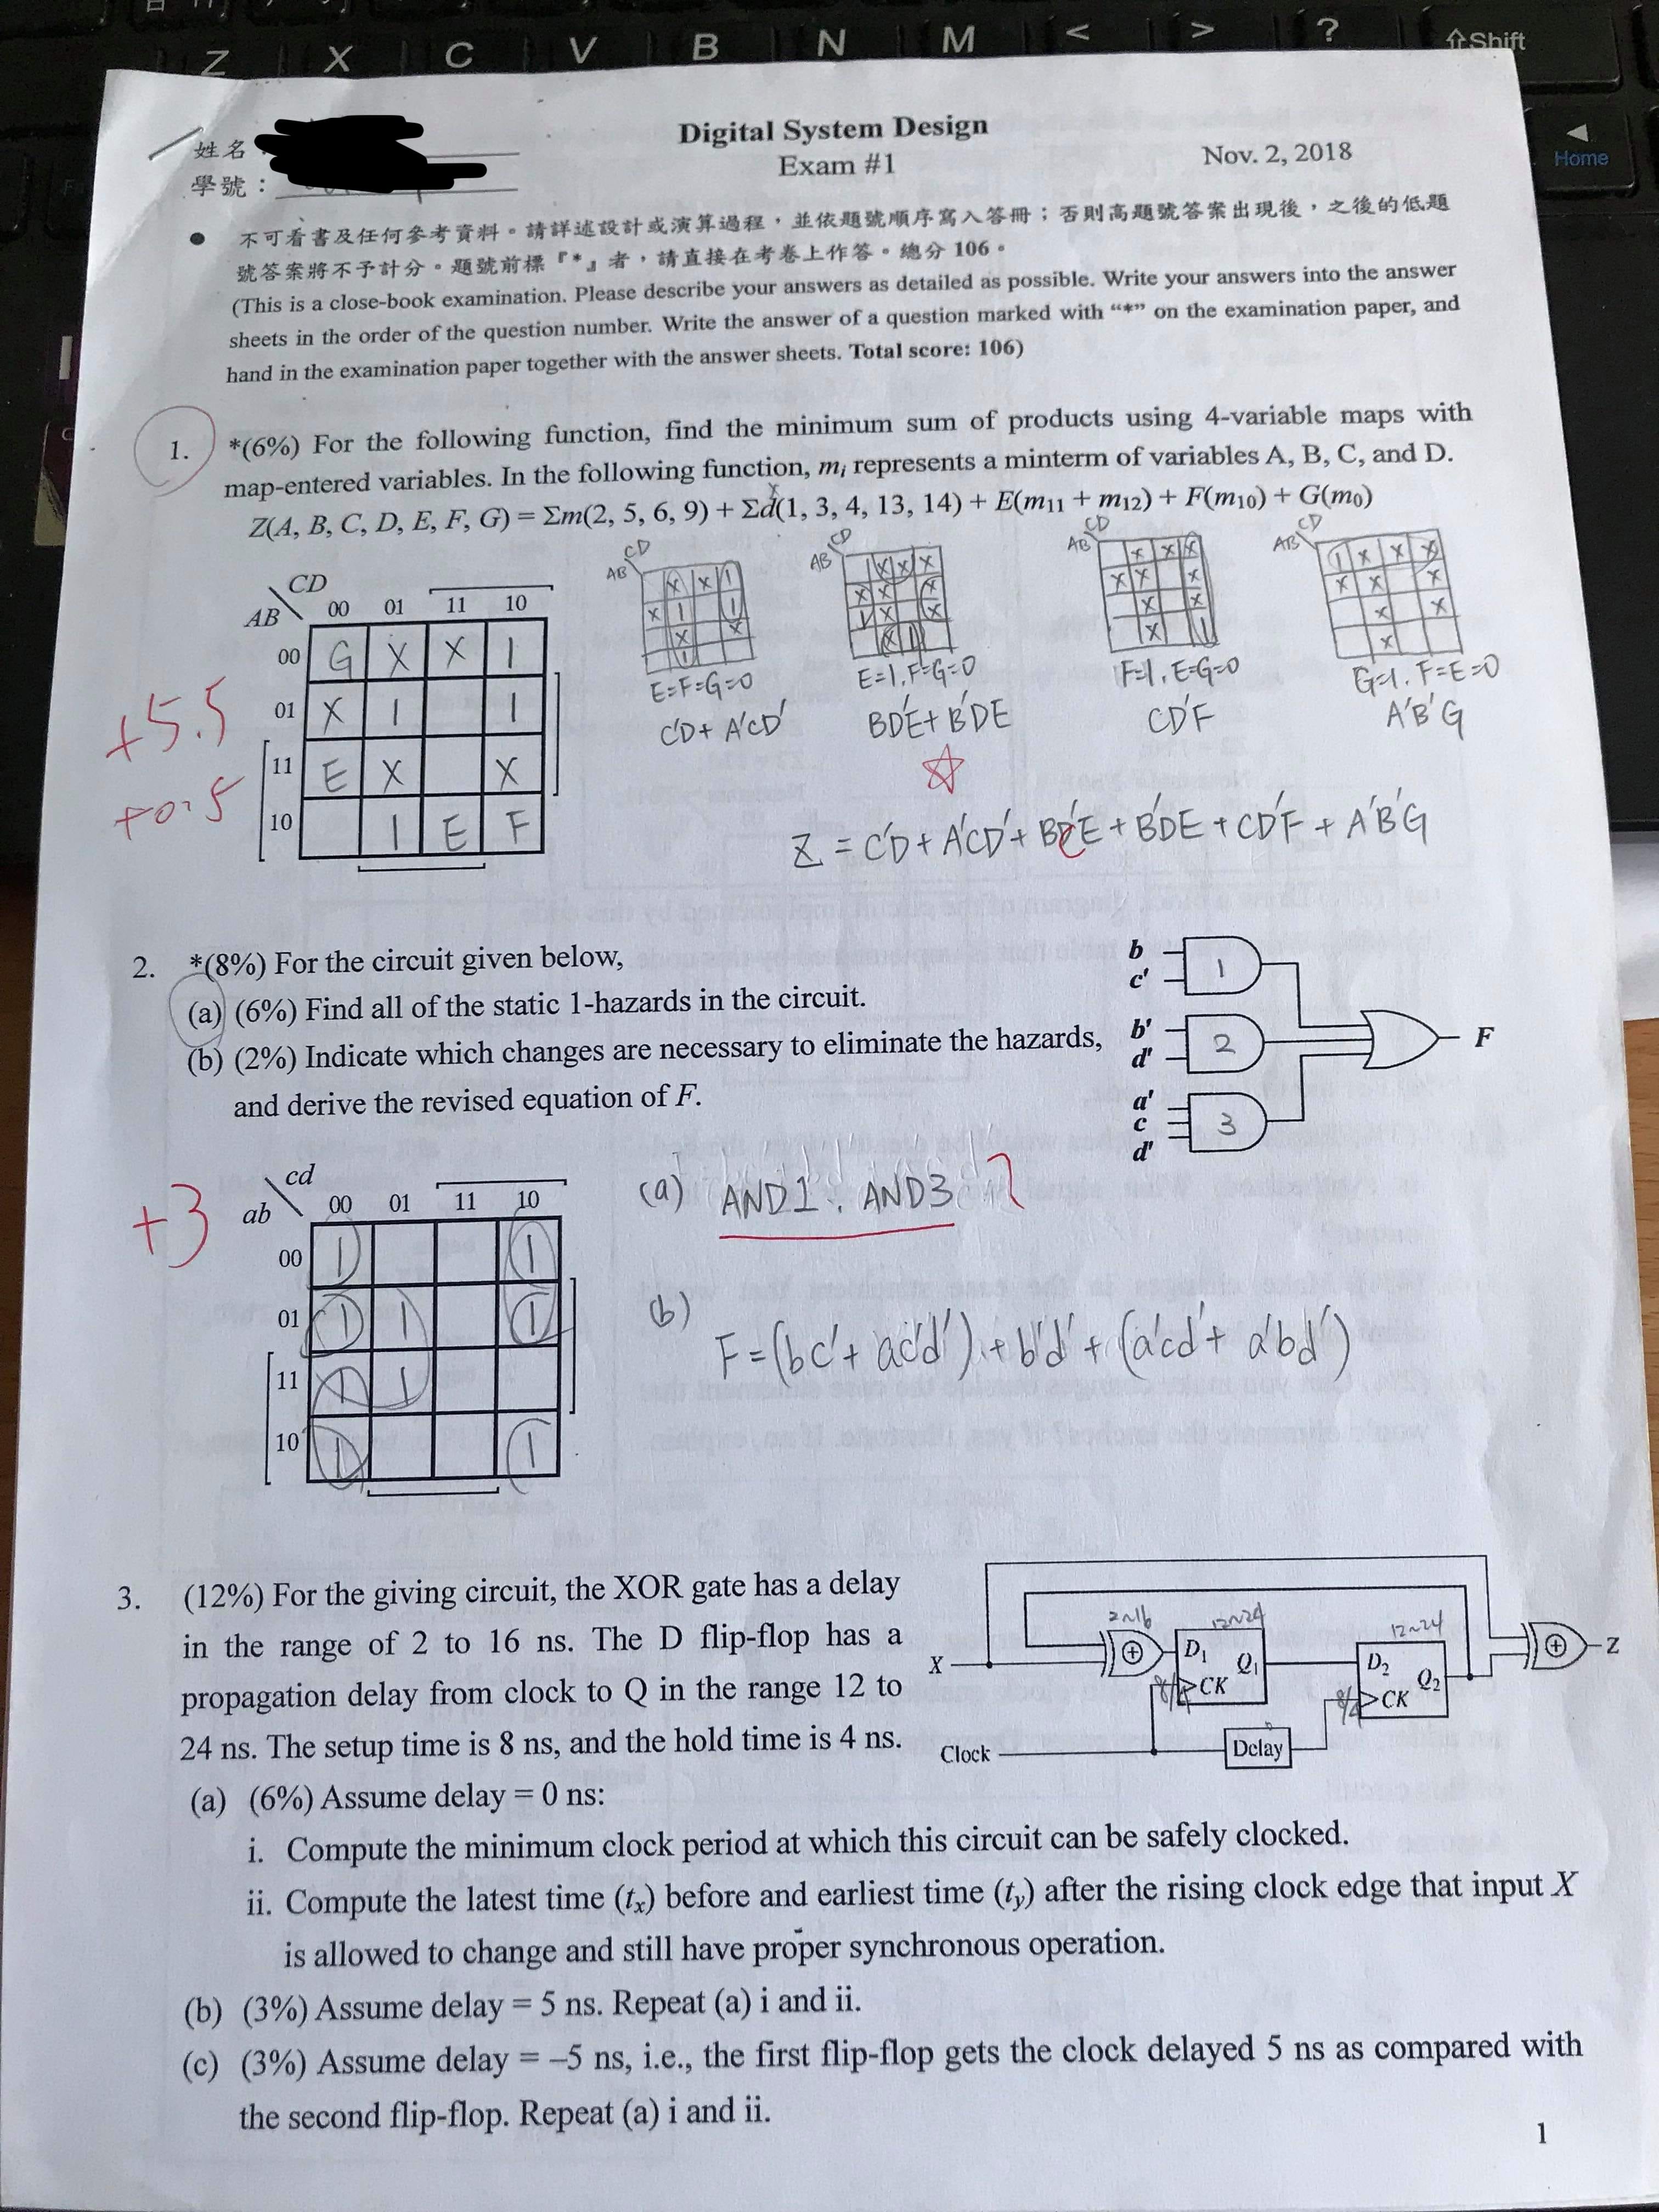 Z X C V B N M < > ? ⇧Shift
Home
姓名:
學號:
Digital System Design
Exam #1
Nov. 2, 2018
● 不可看書及任何參考資料。請詳述設計或演算過程,並依題號順序寫入答冊;否則高題號答案出現後,之後的低題
號答案將不予計分。題號前標『*』者,請直接在考卷上作答。總分 106。
(This is a close-book examination. Please describe your answers as detailed as possible. Write your answers into the answer
sheets in the order of the question number. Write the answer of a question marked with “*” on the examination paper, and
hand in the examination paper together with the answer sheets. Total score: 106)
1. *(6%) For the following function, find the minimum sum of products using 4-variable maps with
map-entered variables. In the following function, mi represents a minterm of variables A, B, C, and D.
Z(A, B, C, D, E, F, G) = Σm(2, 5, 6, 9) + Σd(1, 3, 4, 13, 14) + E(m11 + m12) + F(m10) + G(m0)
CD
AB 00 01 11 10
00 G X X 1
01 X 1 1
11 E X X
10 1 E F
+5.5
+0.5
CD
AB
X X 1
X 1 1
X X
1
E=F=G=0
C'D+A'CD'
CD
AB
E=1, F=G=0
BD'E+B'DE
CD
AB
X X X
X X X
X X
X 1
F=1, E=G=0
CD'F
CD
AB
1 X X X
X X X
X X
X
G=1, F=E=0
A'B'G
Z = C'D+A'CD'+BC'E+B'DE+CD'F+A'B'G
2. *(8%) For the circuit given below,
(a) (6%) Find all of the static 1-hazards in the circuit.
(b) (2%) Indicate which changes are necessary to eliminate the hazards,
and derive the revised equation of F.
b
c'
1
b'
d'
2
a'
c
d'
3
F
+3
cd
ab 00 01 11 10
00 1 1
01 1 1 1
11 1 1
10 1 1
(a) AND1, AND3 ?
(b)
F=(bc'+ac'd')+b'd'+(a'cd'+a'bd')
3. (12%) For the giving circuit, the XOR gate has a delay
in the range of 2 to 16 ns. The D flip-flop has a
propagation delay from clock to Q in the range 12 to
24 ns. The setup time is 8 ns, and the hold time is 4 ns.
2~16
12~24
12~24
X
D1
Q1
CK
8/4
D2
Q2
CK
8/4
Z
Clock
Delay
(a) (6%) Assume delay = 0 ns:
i. Compute the minimum clock period at which this circuit can be safely clocked.
ii. Compute the latest time (tx) before and earliest time (ty) after the rising clock edge that input X
is allowed to change and still have proper synchronous operation.
(b) (3%) Assume delay = 5 ns. Repeat (a) i and ii.
(c) (3%) Assume delay = –5 ns, i.e., the first flip-flop gets the clock delayed 5 ns as compared with
the second flip-flop. Repeat (a) i and ii.
1